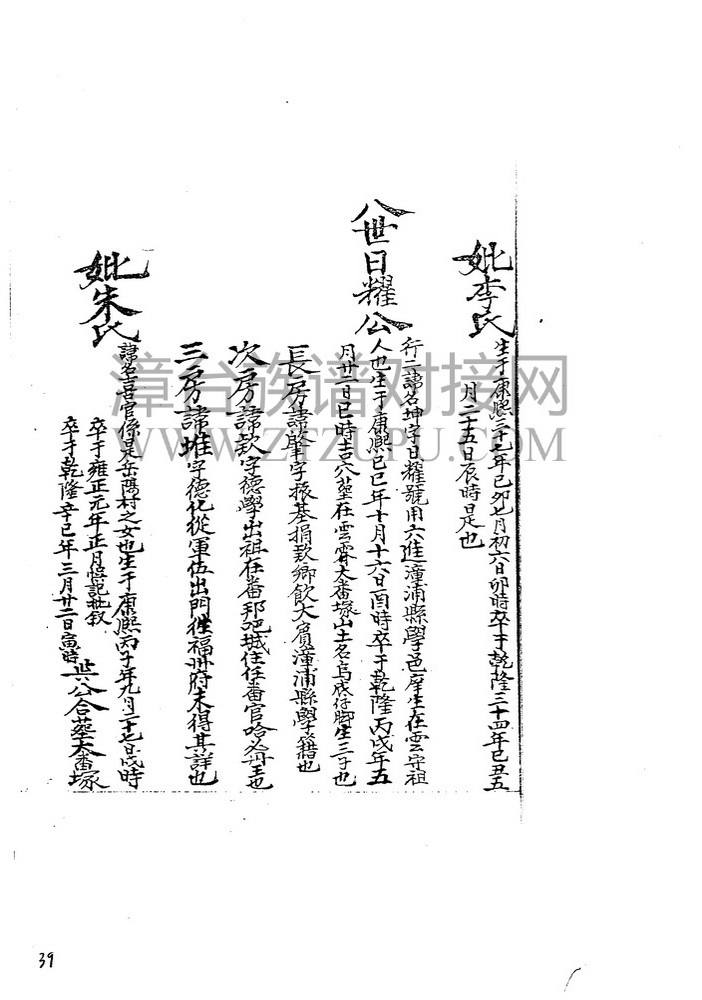 妣李氏 生于康熙三十七年己卯七月初六日卯時卒于乾隆三十四年己丑五
月二十五日辰時是也
八世日耀公 行二諱名坤字日耀號用六進漳浦縣學邑庠生在雲守祖
人也生于康熙己巳年十月十六日酉時卒于乾隆丙戌年五
月廿二日巳時吉穴塟在雲霄大番塚山土名烏成仔脚生三子也
長房諱肇字振基捐致鄉飲大賓漳浦縣學籍也
次房諱欽字德學出祖在番邦吧城住任番官哈必丹主也
三房諱堆字德化從軍伍出門往福州府未得其詳也
妣朱氏 諱名喜官係是岳陽村之女也生于康熙丙子年九月二十七日戌時
卒于雍正元年正月 批叙
卒于乾隆辛巳年三月廿二日寅時 與公合塟大番塚
漳台族谱对接网
WWW.ZTZUPU.COM
39